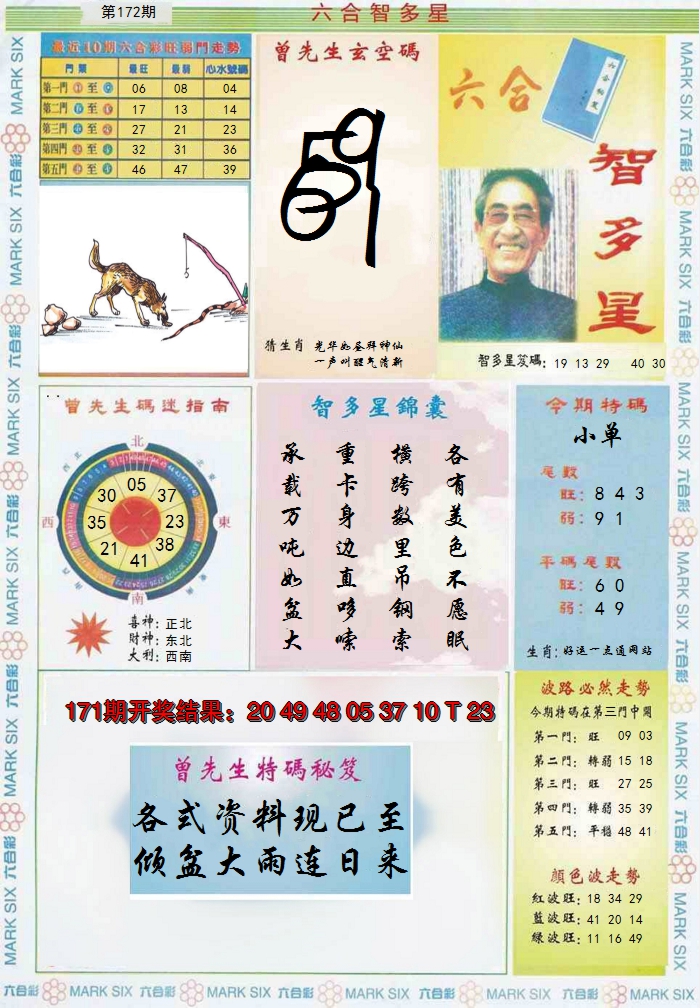 第172期
六合智多星
最近10期六合彩旺弱門走勢
門類 最旺 最弱 心水號碼
第一門 至 06 08 04
第二門 至 17 13 14
第三門 至 27 21 23
第四門 至 32 31 36
第五門 至 46 47 39
曾先生玄空碼
猜生肖 光华如昼拜神仙
一声叫醒气清新
六合
智多星
智多星笈碼: 19 13 29 40 30
曾先生碼迷指南
北
西
東
南
05
37
23
38
41
21
35
30
喜神: 正北
財神: 东北
大利: 西南
智多星錦囊
各有美色不愿眠
横跨数里吊钢索
重卡身边直哆嗦
承载万吨如盆大
今期特碼
小单
尾數
旺: 8 4 3
弱: 9 1
平碼尾數
旺: 6 0
弱: 4 9
生肖: 好运一点通网站
171期开奖结果: 20 49 48 05 37 10 T 23
曾先生特碼秘笈
各式资料现已至
倾盆大雨连日来
波路必然走勢
今期特碼在第三門中開
第一門: 旺 09 03
第二門: 轉弱 15 18
第三門: 旺 27 25
第四門: 轉弱 35 39
第五門: 平穩 48 41
顏色波走勢
紅波旺: 18 34 29
藍波旺: 41 20 14
綠波旺: 11 16 49
MARK SIX 六合彩 MARK SIX 六合彩 MARK SIX 六合彩 MARK SIX 六合彩 MARK SIX 六合彩